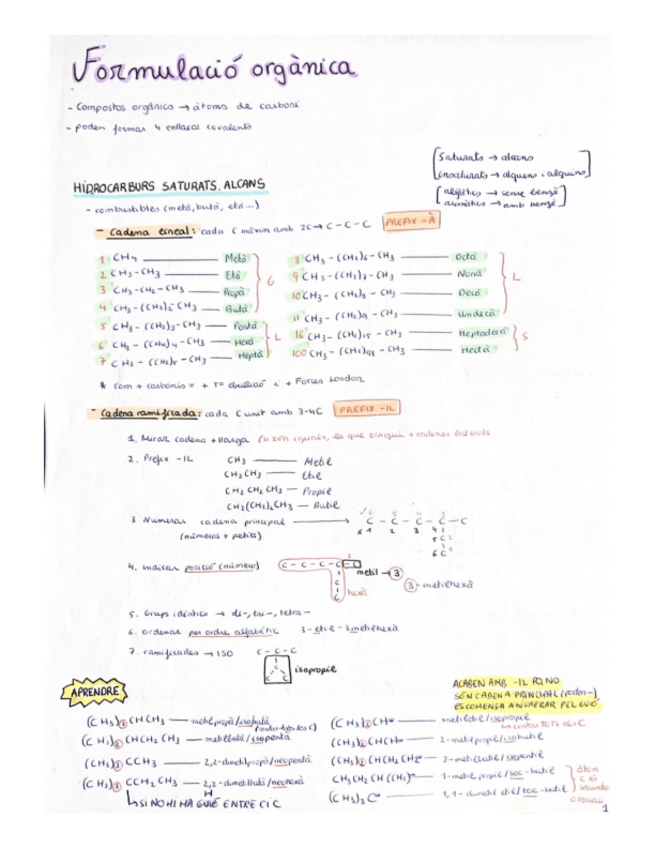 Formulació orgànica
- Compostos orgànics → àtoms de carboni
- poden formar 4 enllaços covalents
Saturats → alcans
insaturats → alquens i alquins
alifàtics → sense benzè
aromàtics → amb benzè
HIDROCARBURS SATURATS. ALCANS
- combustibles (metà, butà, età...)
- Cadena lineal: cada C màxim amb 2C → C - C - C PREFIX -À
1 CH4 Metà
2 CH3-CH3 Età
3 CH3-CH2-CH3 Propà
4 CH3-(CH2)2-CH3 Butà
G
5 CH3-(CH2)3-CH3 Pentà
6 CH3-(CH2)4-CH3 Hexà
7 CH3-(CH2)5-CH3 Heptà
L
8 CH3-(CH2)6-CH3 Octà
9 CH3-(CH2)7-CH3 Nonà
10 CH3-(CH2)8-CH3 Decà
11 CH3-(CH2)9-CH3 Undecà
L
CH3-(CH2)15-CH3 Heptadecà
100 CH3-(CH2)98-CH3 Hectà
S
* Com + carbonis = + Tº ebullició i + Forces London
- Cadena ramificada: cada C unit amb 3-4C PREFIX -IL
1. Mirar cadena + llarga (si són iguals, la que tingui + cadenes laterals
2. Prefix -IL
CH3 Metil
CH2CH3 Etil
CH2CH2CH3 Propil
CH2(CH2)2CH3 Butil
3 Numerar cadena principal →
(números + petits)
C - C - C - C - C
x 1 2 3 4
5 C
6 C
4. Indicar posició (número)
C - C - C - C - C
C
C
metil → 3
hexà
3 - metilhexà
5. Grups idèntics → di-, tri-, tetra-
6. ordenar per ordre alfabètic 3-etil-3metilhexà
7. ramificades → ISO
C - C - C
C
C C
isopropil
APRENDRE
ACABEN AMB -IL PQ NO
SÓN CADENA PRINCIPAL
ES COMENÇA A NUMERAR PEL GUIÓ
(CH3)2CHCH3 metilpropà/isobutà
(CH3)2CHCH2CH3 metilbutà/isopentà
(CH3)3CCH3 2,2-dimetilpropà/neopentà
(CH3)3CCH2CH3 2,2-dimetilbutà/neohexà
SI NO HI HA GUIÓ ENTRE C I C
(CH3)2CH- metiletil/isopropil
(CH3)2CHCH- 2-metilpropil/isobutil
(CH3)2CHCH2CH2- 3-metilbutil/isopentil
CH3CH2CH(CH3)- 1-metilpropil/sec-butil
(CH3)3C- 1,1-dimetiletil/terc-butil
àtom
C és
secundari
o terciari
1